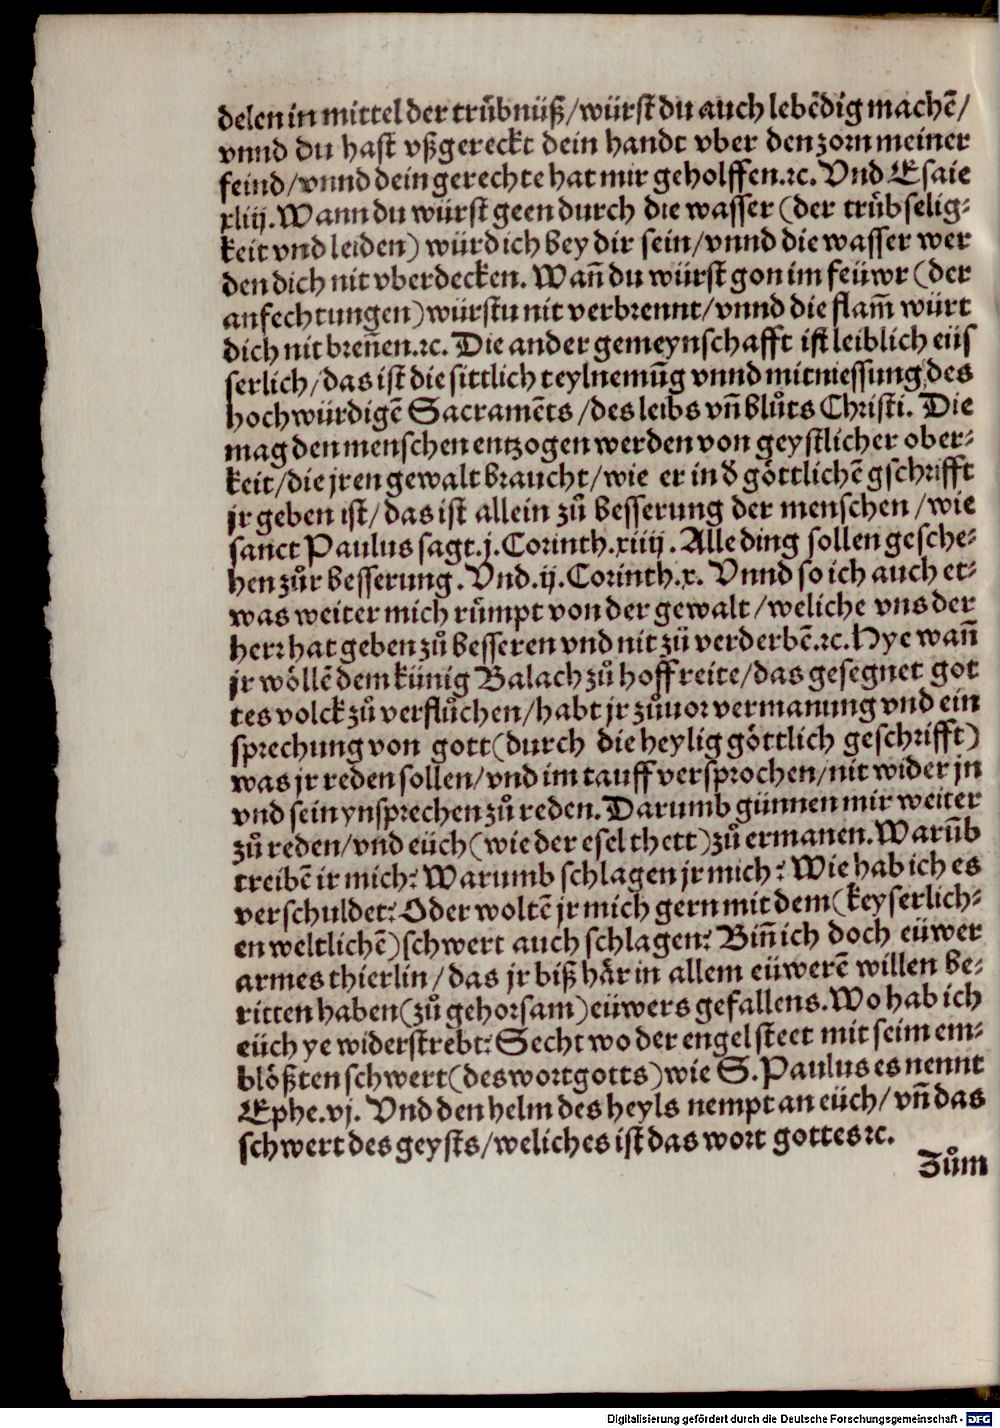 delen in mittel der truͤbnüß/würst du auch lebēdig machē/
vnnd du hast vßgereckt dein handt vber den zorn meiner
feind/vnnd dein gerechte hat mir geholffen.ꝛc. Vnd Esaie
xliij. Wann du würst geen durch die wasser (der truͤbselig⸗
keit vnd leiden) würd ich bey dir sein/vnnd die wasser wer
den dich nit vberdecken. Wan̄ du würst gon im feüwr (der
anfechtungen) würstu nit verbrennt/vnnd die flam̄ würt
dich nit bren̄en.ꝛc. Die ander gemeynschafft ist leiblich eüs
serlich/das ist die sittlich teylnemūg vnnd mitniessung des
hochwürdigē Sacramēts/des leibs vn̄ bluͦts Christi. Die
mag den menschen entzogen werden von geystlicher ober⸗
keit/die jren gewalt braucht/wie er in d̄ goͤttlichē gschrifft
jr geben ist/das ist allein zuͦ besserung der menschen/wie
sanct Paulus sagt.j.Corinth.xiiij. Alle ding sollen gesche⸗
hen zuͦr besserung. Vnd.ij.Corinth.x. Vnnd so ich auch et⸗
was weiter mich ruͤmpt von der gewalt/weliche vns der
herꝛ hat geben zuͦ besseren vnd nit zü verderbē.ꝛc. Hye wan̄
jr woͤllē dem künig Balach zuͦ hoff reite/das gesegnet got
tes volck zuͦ verfluͦchen/habt jr zuͦuor vermanung vnd ein
sprechung von gott (durch die heylig goͤttlich geschrifft)
was jr reden sollen/vnd im tauff versprochen/nit wider jn
vnd sein ynsprechen zuͦ reden. Darumb günnen mir weiter
zuͦ reden/vnd eüch (wie der esel thett) zuͦ ermanen. Warūb
treibē ir mich? Warumb schlagen jr mich? Wie hab ich es
verschuldet? Oder woltē jr mich gern mit dem (keyserlich⸗
en weltlichē) schwert auch schlagen? Bin̄ ich doch eüwer
armes thierlin/das jr biß haͤr in allem eüwerē willen be⸗
ritten haben (zuͦ gehorsam) eüwers gefallens. Wo hab ich
eüch ye widerstrebt? Secht wo der engel steet mit seim em⸗
bloͤßten schwert (des wort gotts) wie S. Paulus es nennt
Ephe.vj. Vnd den helm des heyls nempt an eüch/vn̄ das
schwert des geysts/weliches ist das wort gottes ꝛc.
Zuͦm
Digitalisierung gefördert durch die Deutsche Forschungsgemeinschaft - DFG